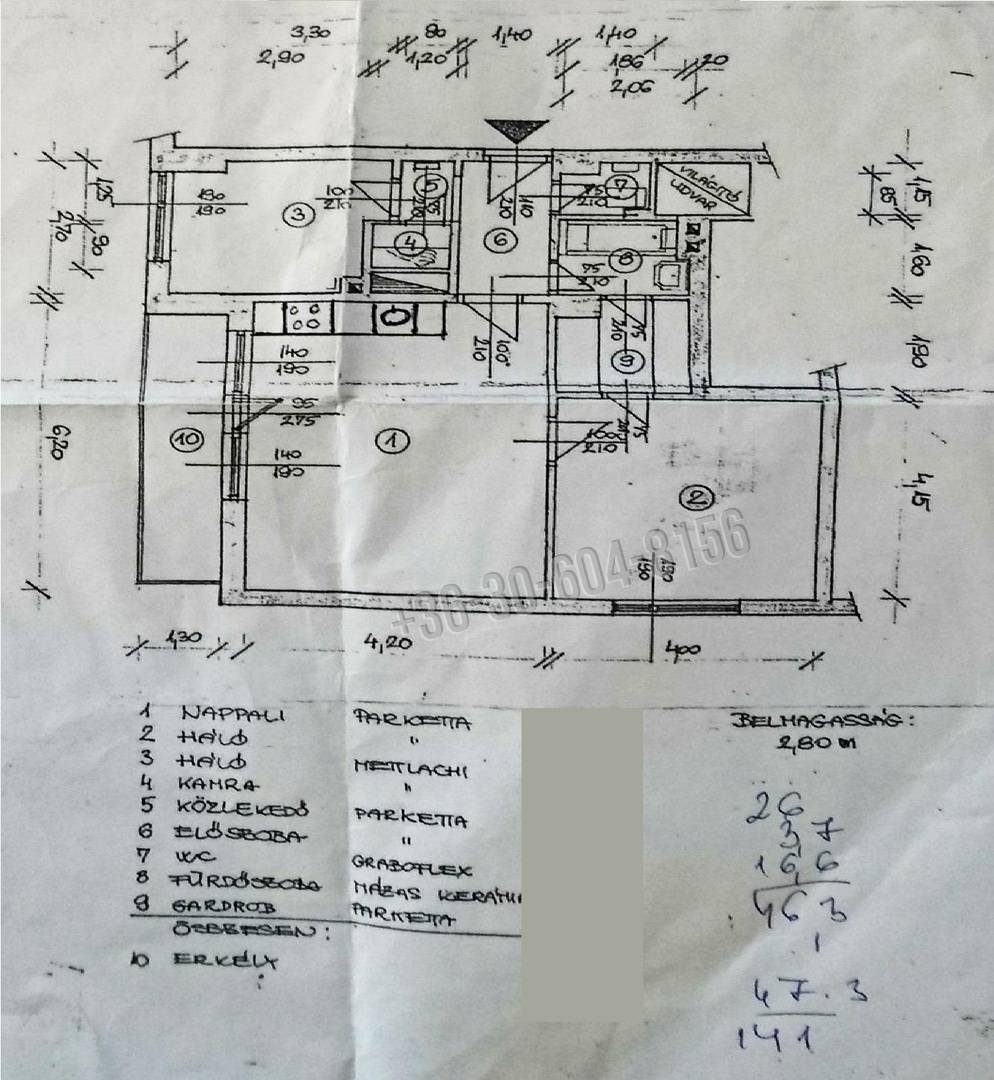 3,30 80 1,40 1,40
2,90 1,20 186 20
2,06
VILÁGÍTÓ
UDVAR
1,25
2,70
90
6,20
85
1,15
1,60
1,90
4,15
190
190
3
100
210
5
4
6
210
110
75
210
7
8
75
210
9
210
75
210
100
140
190
95
275
140
190
10
1
100
210
2
190
190
+36-30-604-8156
1,30 4,20 4,00
1 NAPPALI PARKETTA
2 HÁLÓ "
3 HÁLÓ METTLACHI
4 KAMRA "
5 KÖZLEKEDŐ PARKETTA
6 ELŐSZOBA "
7 WC GRABOFLEX
8 FÜRDŐSZOBA MÁZAS KERÁMI
9 GARDROB PARKETTA
ÖSSZESEN:
10 ERKÉLY
BELMAGASSÁG:
2,80 m
26
37
16,6
463
1
47.3
141